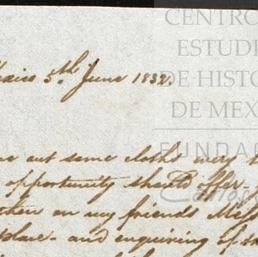 CENTRO
ESTUDI
DE HISTO
DE MEX
FUNDAC
5th June 1832.
out some cloths very
opportunity should offer
on my friends Mess
place - and enquiring of